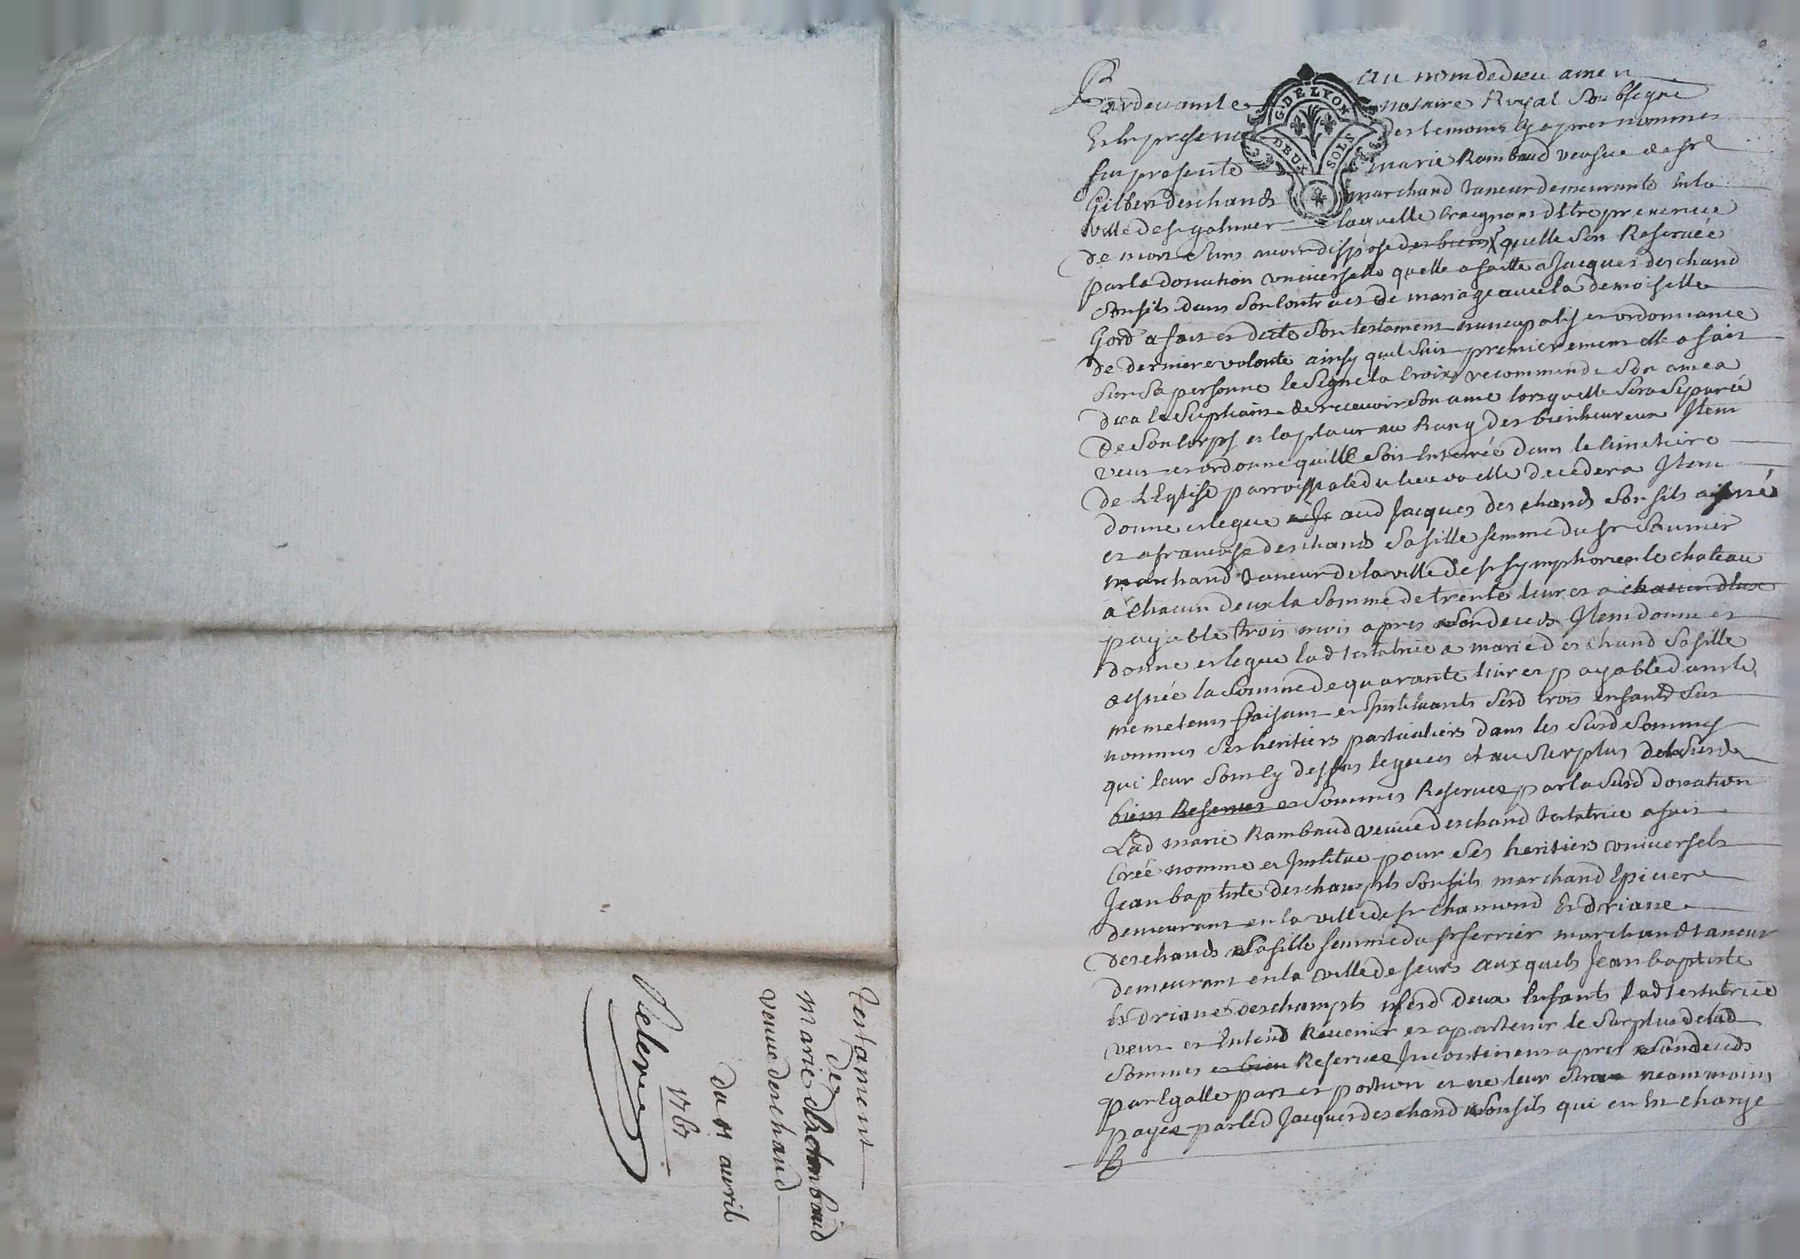 Testament
de
marie Rambaud
veuve deschand
du 11 avril
1767
au nom de dieu amen
G. DE LYON
DEUX SOLS
Pardevant le notaire Royal Soubsigné
Et En presence des temoins cy apres nommes
fut presente marie Rambaud veufve de sr
Gilbert deschands marchand taneur demeurante en la
ville de st galmier laquelle Craignant d'etre prevenue
de mort Sans avoir dispose des biens quelle sest Reservée
par la donation universelle quelle a faitte a Jacques deschand
son fils dans Son Contract de mariage avec la demoiselle
Gord a fait et dicté Son testament nuncupatif et ordonnance
de derniere volonté ainsy quil Suit premierement elle a fait
Sur Sa personne le Signe la Croix recommende Son ame a
dieu le Supliant de recevoir Son ame lorsquelle Sera Separée
de Son Corps et la placer au Rang des bienheureux Item
veut et ordonne quelle Soit Enterrée dans le Cimetiere
de L'Eglise parroissiale du lieu ou elle decedera Item
donne et legue aud Jacques deschands Son fils aisné
et a francoise deschands Sa fille femme du sr
marchand taneur de la ville de st Symphorien le chateau
a Chacun deux la Somme de trente livres a chacun deux
payable trois mois apres Son deces Item donne et
donne et legue lad testatrice a marie deschand Sa fille
aisnée la Somme de quarante livres payable dans le
meme tems faisant et Instituants Sesd trois enfants Sus
nommes Ses heritiers particuliers dans les Susd Sommes
qui leur Sont Cy dessus leguees et au Surplus de la Susd
biens Reserves et Sommes Reservee par la Susd donation
Lad marie Rambaud veuve deschand testatrice a fait
Créé nomme et Institue pour Ses heritiers universels
Jean baptiste deschamps Son fils marchand Epicier
demeurant en la ville de st chamond Et driane
deschands Sa fille femme du sr ferrier marchand taneur
demeurant en la ville de feurs auxquels Jean baptiste
Et driane deschampts Sesd deux Enfants lad testatrice
veut et Entend Revenir et apartenir le Surplus de lad
Sommes et bien Reservee Incontinent apres Son deceds
par Egalle part et portion et ne leur Sera neammoins
payee par led Jacques deschand Son fils qui en Est charge